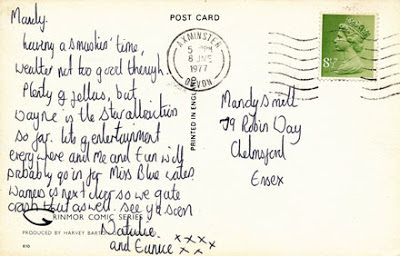 POST CARD
Mandy.
having a smashin' time,
weather not too good though.
Plenty of fellas, but
Wayne is the star attraction
so far. lots of entertainment
everywhere and me and Eun will
probably go in for Miss Blue later.
Warners is next door so we gate
crash that as well. See ya soon
Natalie
and Eunice xxxx
xx
AXMINSTER
5 PM
8 JNE
1977
DEVON
8½P
Mandy Smill
79 Robin Way
Chelmsford
Essex
PRINTED IN ENG
GRINMOR COMIC SERIES
PRODUCED BY HARVEY BARTO
610